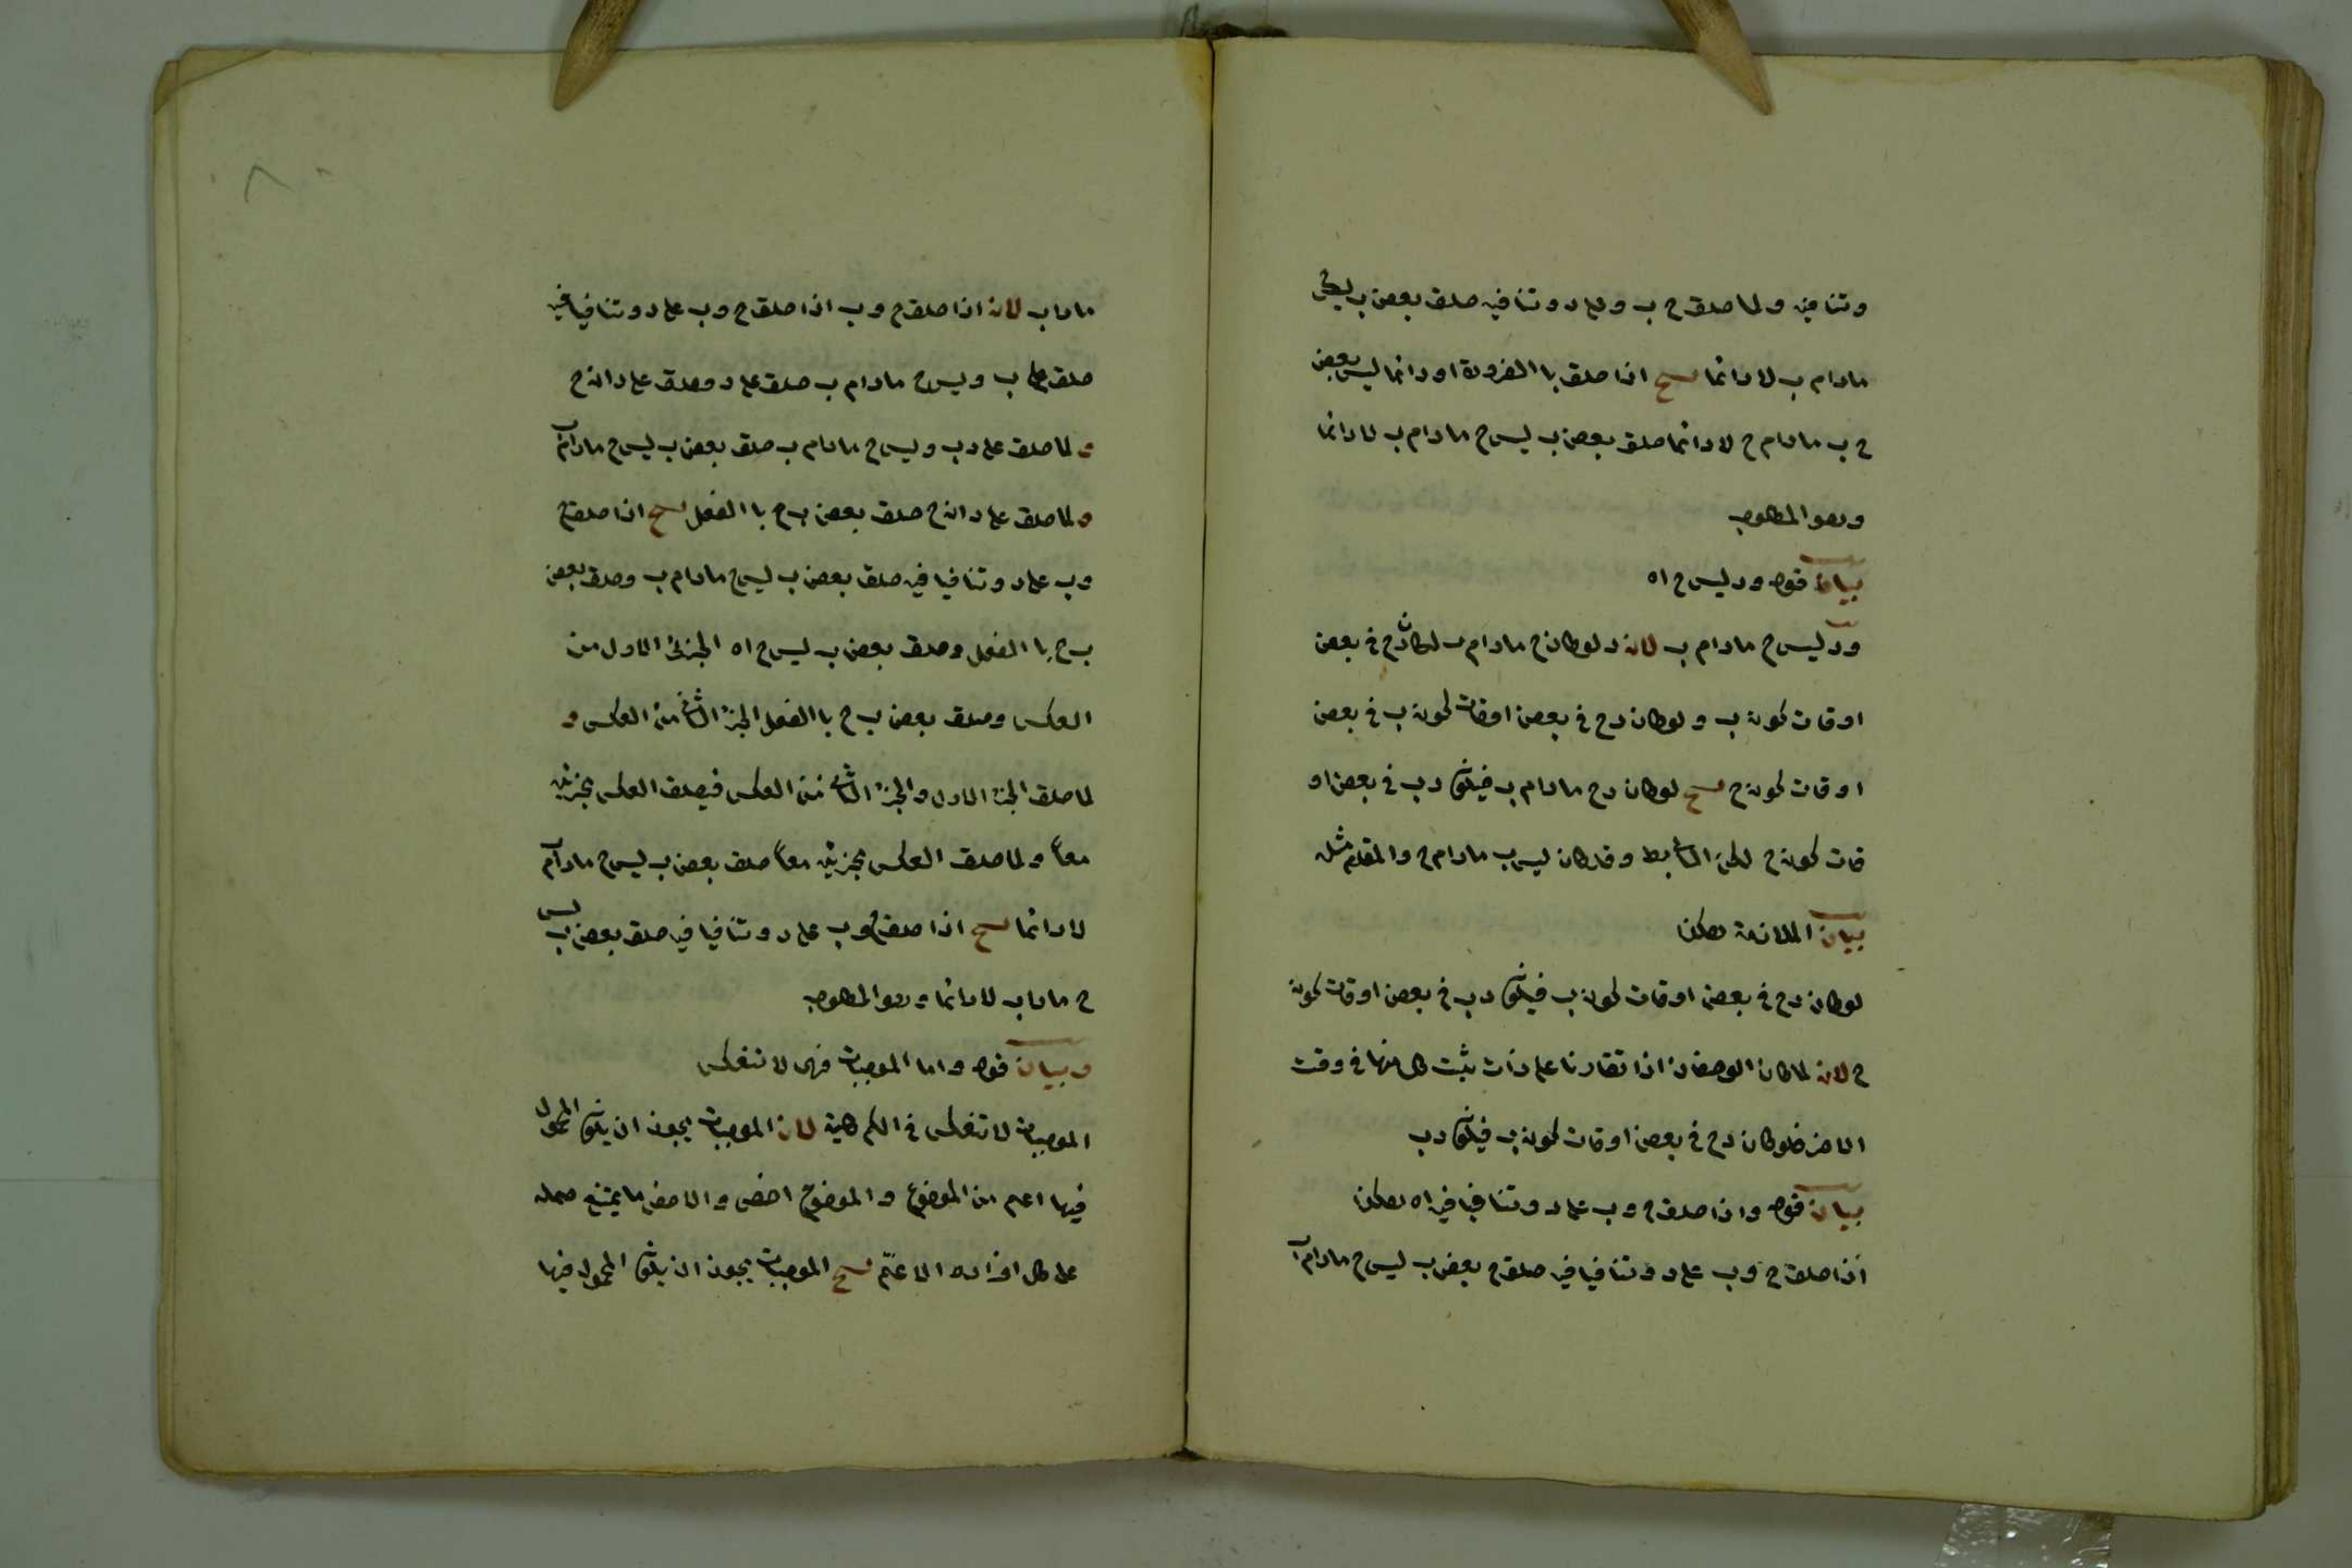 وتنافيه ولما صدق ج ب وعلى د وتنافيه صدق بعض ب ليس ج
مادام ب لا دائما نسخ اذا صدق باالضرورة او دائما ليس بعض
ج ب مادام ج لا دائما صدق بعض ب ليس ج مادام ب لا دائما
وهو المطلوب
بيان قوله ود ليس ج اه
ود ليس ج مادام ب لان د لو كان ج مادام ب لكان د ج في بعض
اوقات كونه ب ولو كان د ج في بعض اوقات كونه ب في بعض
اوقات كونه ج نسخ لو كان د ج مادام ب فيكون د ب في بعض او
قات كونه ج لكن التالي بط وقد كان ليس ب مادام ج والمقدم مثله
بيان الملازمة هكذا
لو كان د ج في بعض اوقات كونه ب فيكون د ب في بعض اوقات كونه
ج لان لما كان الوصفان اذا تقارنا على ذات يثبت كل منها في وقت
الاخر فلو كان د ج في بعض اوقات كونه ب فيكون د ب
بيان قوله واذا صدق ج وب على د وتنافيا فيه اه هكذا
اذا صدق ج وب على د وتنافيا فيه صدق ج بعض ب ليس ج مادام
ماداب لان اذا صدق ج وب اذا صدق ج وب على د وتنافيا فيه
صدق على ب وليس ج مادام ب صدق على د وصدق على د انه ج
ولما صدق على د ب وليس ج مادام ب صدق بعض ب ليس ج مادام ب
ولما صدق على د انه ج صدق بعض ب ج باالفعل نسخ اذا صدق ج
وب على د وتنافيا فيه صدق بعض ب ليس ج مادام ب وصدق بعض
ب ج باالفعل وصدق بعض ب ليس ج اه الجزئ الاول من
العكس وصدق بعض ب ج باالفعل الجزء الثاني من العكس و
لما صدق الجزء الاول والجزء الثاني من العكس فيصدق العكس بجزئيه
معا ولما صدق العكس بجزئيه معا صدق بعض ب ليس ج مادام
لا دائما نسخ اذا صدق ج وب على د وتنافيا فيه صدق بعض ب ليس
ج ماداب لا دائما وهو المطلوب
وبيان قوله واما الموجبات فهى لا تنعكس
الموجبات لا تنعكس في الكم كلية لان الموجبات يجوز ان يكون المحمول
فيها اعم من الموضوع والموضوع اخص والاخص ما يمتنع حمله
على كل افراده الاعم نسخ الموجبات يجوز ان يكون المحمول فيها